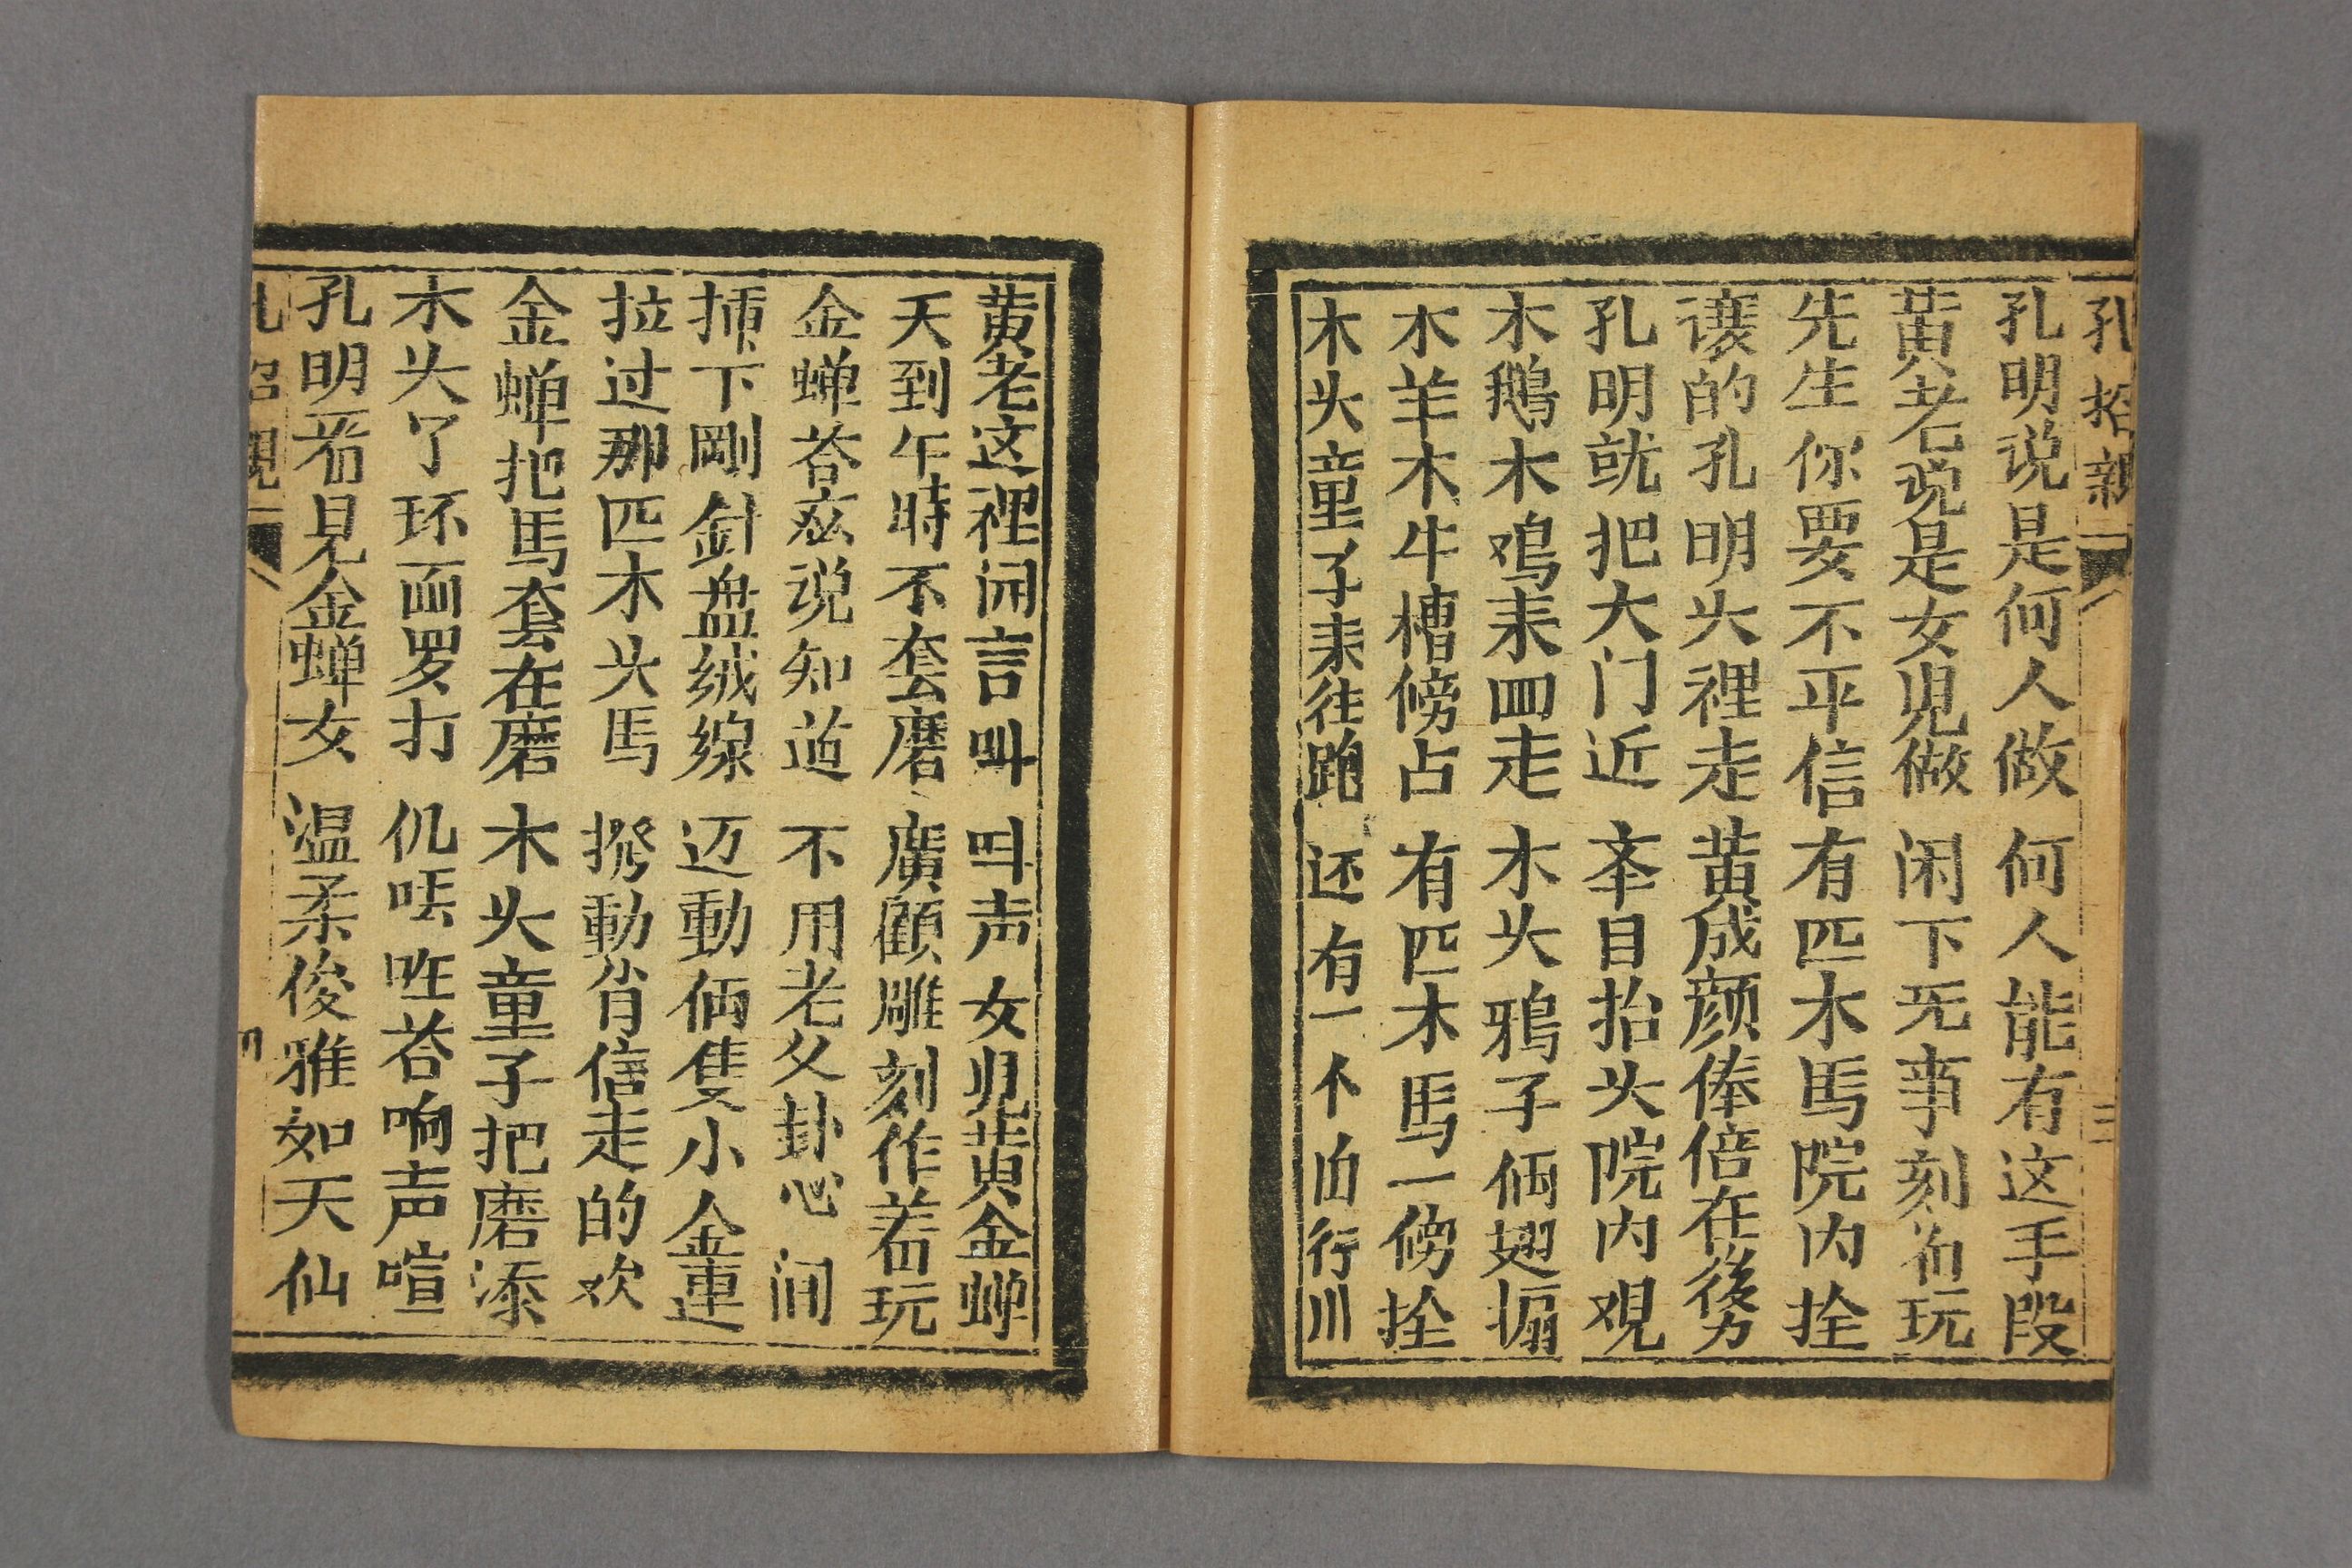 孔招親 三
孔明说是何人做 何人能有这手段
黄老说是女児做 闲下无事刻着玩
先生你要不平信 有匹木馬院内拴
讓的孔明头裡走 黄成颜俸倍在後
孔明就把大门近 夲目抬头院内观
木鵝木鳮耒回走 木头鸦子俩翅搧
木羊木牛槽傍占 有匹木馬一傍拴
木头童子耒往跑 还有一个由行川
黄老这裡闲言叫 叫声女児黄金蝉
天到午時不套磨 廣顧雕刻作着玩
金蝉荅应说知道 不用老父卦心间
揷下剛針盘绒線 迈動俩隻小金連
拉过那匹木头馬 撥動肖信走的欢
金蝉把馬套在磨 木头童子把磨添
木头了环面罗打 仉呩咗荅响声喧
孔明看見金蝉女 温柔俊雅如天仙
孔招親